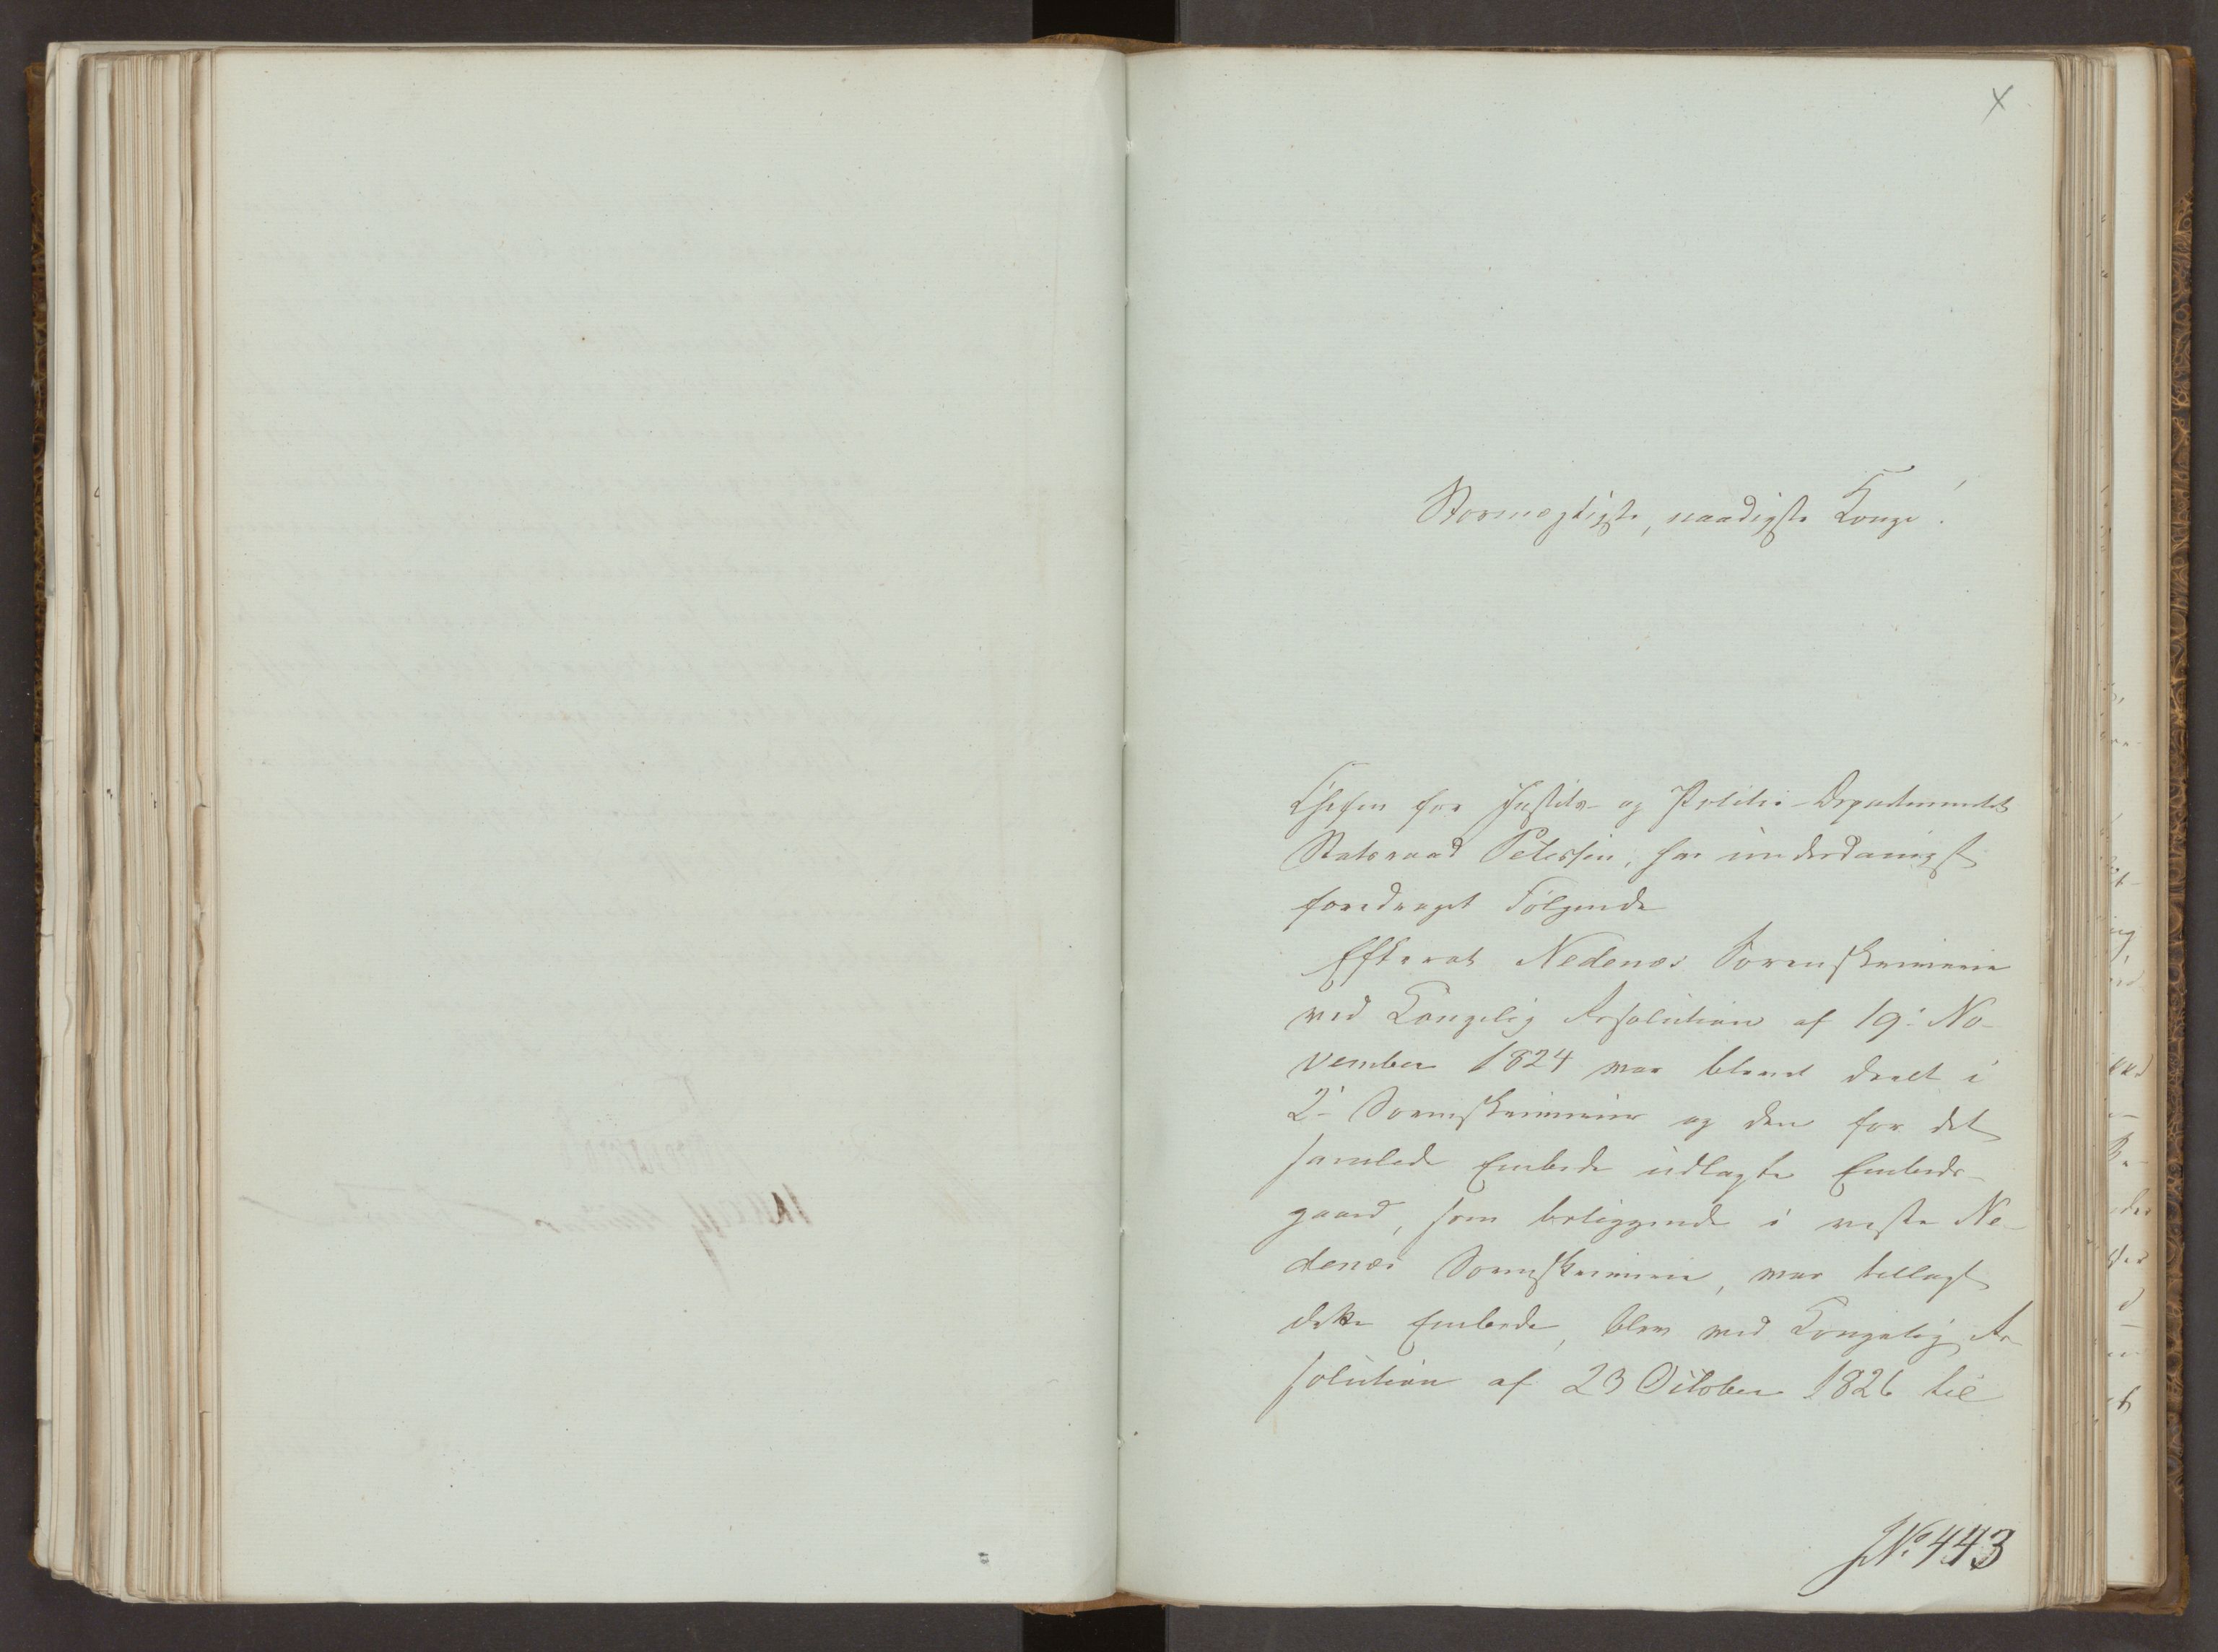 Stormægtigste, naadigste Konge!
Chefen for Justits- og Politie-Departementet
Statsraad Petersen, har underdanigst
foredraget Følgende
Efterat Nedenæs Sorenskriverie
ved Kongelig Resolution af 19: No-
vember 1824 var blevet deelt i
2: Sorenskriverier og den for det
samlede Embede udlagte Embeds-
gaard, som beliggende i vestre Ne-
denæs Sorenskriverie, var tillagt
dette Embede, blev ved Kongelig Re-
solution af 23 October 1826 til
JN:o 443